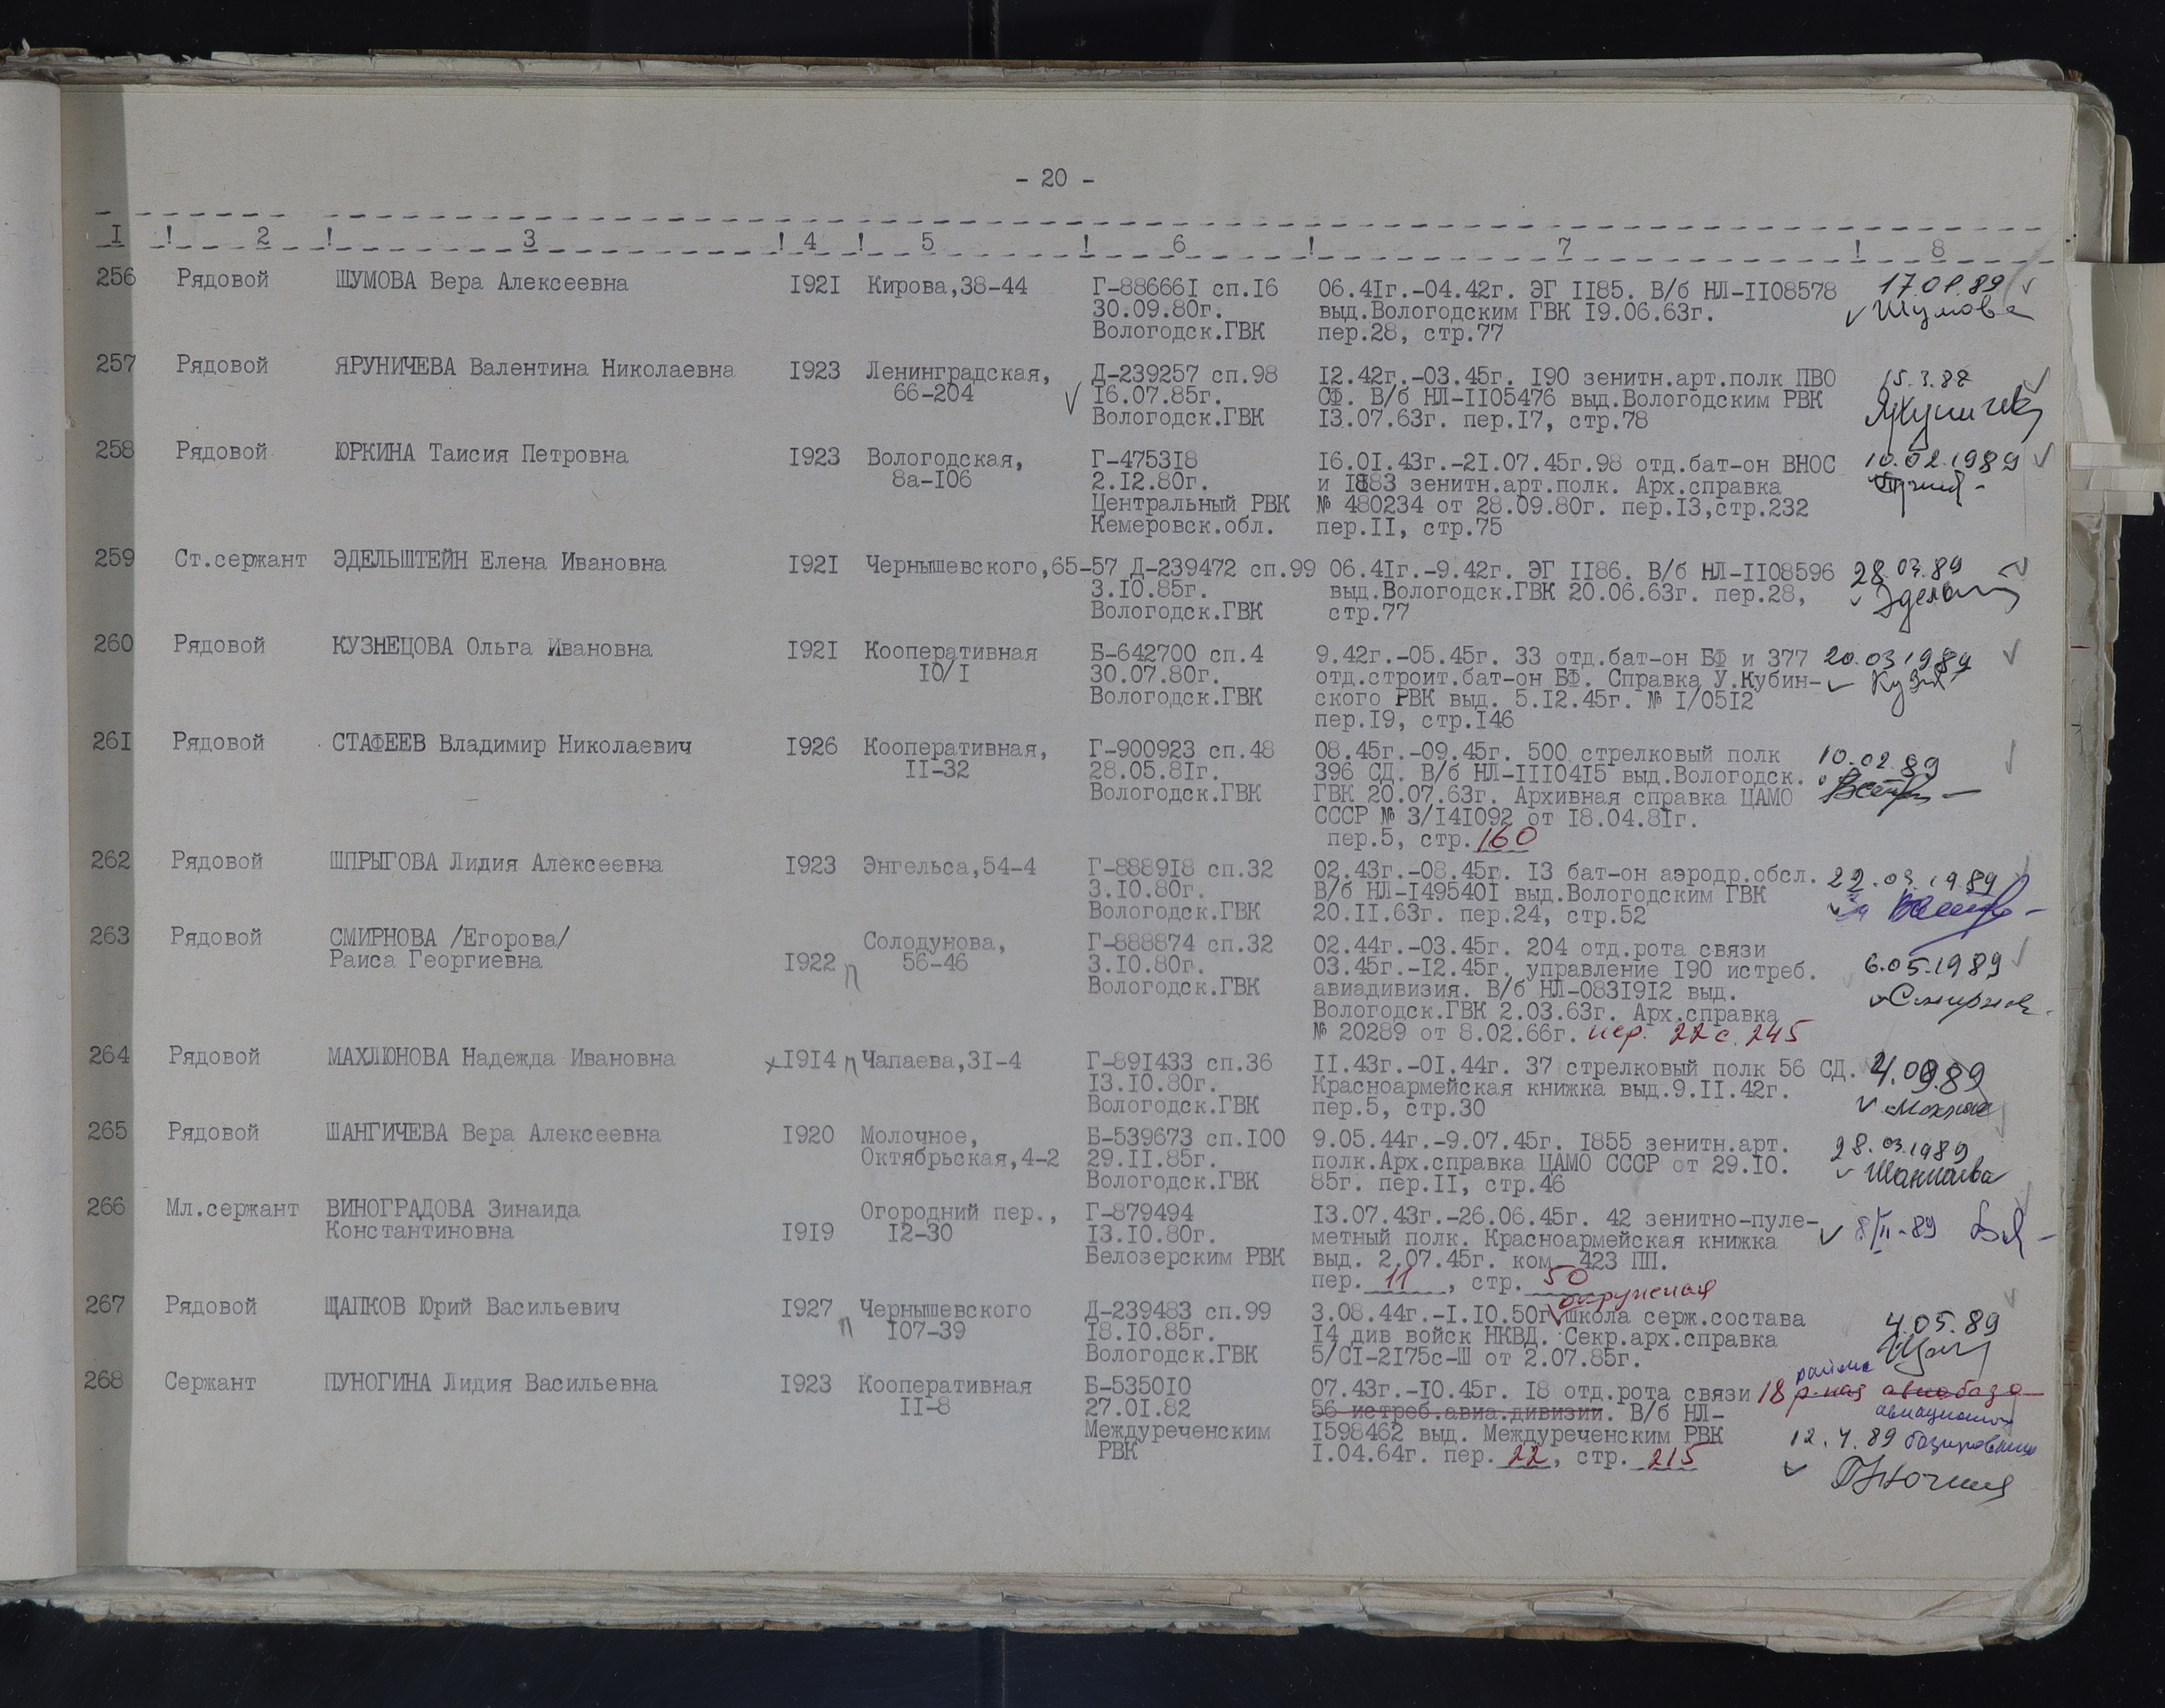 - 20 -
I ! 2 ! 3 ! 4 ! 5 ! 6 ! 7 ! 8
256 Рядовой ШУМОВА Вера Алексеевна I92I Кирова,38-44 Г-88666I сп.I6 06.4Iг.-04.42г. ЭГ II85. В/б НЛ-II08578 17.01.89
30.09.80г. выд.Вологодским ГВК I9.06.63г. Шумова
Вологодск.ГВК пер.28, стр.77
257 Рядовой ЯРУНИЧЕВА Валентина Николаевна I923 Ленинградская, Д-239257 сп.98 I2.42г.-03.45г. I90 зенитн.арт.полк ПВО 15.3.88
66-204 I6.07.85г. СФ. В/б НЛ-II05476 выд.Вологодским РВК
Вологодск.ГВК I3.07.63г. пер.I7, стр.78
258 Рядовой ЮРКИНА Таисия Петровна I923 Вологодская, Г-4753I8 I6.0I.43г.-2I.07.45г.98 отд.бат-он ВНОС 10.02.1989
8а-I06 2.I2.80г. и I883 зенитн.арт.полк. Арх.справка
Центральный РВК № 480234 от 28.09.80г. пер.I3,стр.232
Кемеровск.обл. пер.II, стр.75
259 Ст.сержант ЭДЕЛЬШТЕЙН Елена Ивановна I92I Чернышевского,65-57 Д-239472 сп.99 06.4Iг.-9.42г. ЭГ II86. В/б НЛ-II08596 28.03.89
3.I0.85г. выд.Вологодск.ГВК 20.06.63г. пер.28,
Вологодск.ГВК стр.77
260 Рядовой КУЗНЕЦОВА Ольга Ивановна I92I Кооперативная Б-642700 сп.4 9.42г.-05.45г. 33 отд.бат-он БФ и 377 20.03 1989
I0/I 30.07.80г. отд.строит.бат-он БФ. Справка У.Кубин-
Вологодск.ГВК ского РВК выд. 5.I2.45г. № I/05I2
пер.I9, стр.I46
26I Рядовой СТАФЕЕВ Владимир Николаевич I926 Кооперативная, Г-900923 сп.48 08.45г.-09.45г. 500 стрелковый полк 10.02.89
II-32 28.05.8Iг. 396 СД. В/б НЛ-III04I5 выд.Вологодск.
Вологодск.ГВК ГВК 20.07.63г. Архивная справка ЦАМО
СССР № 3/I4I092 от I8.04.8Iг.
пер.5, стр.160
262 Рядовой ШПРЫГОВА Лидия Алексеевна I923 Энгельса,54-4 Г-8889I8 сп.32 02.43г.-08.45г. I3 бат-он аэродр.обсл. 22.03.1989
3.I0.80г. В/б НЛ-I49540I выд.Вологодским ГВК
Вологодск.ГВК 20.II.63г. пер.24, стр.52
263 Рядовой СМИРНОВА /Егорова/ Солодунова, Г-888874 сп.32 02.44г.-03.45г. 204 отд.рота связи
Раиса Георгиевна I922 п 56-46 3.I0.80г. 03.45г.-I2.45г. управление I90 истреб. 6.05.1989
Вологодск.ГВК авиадивизия. В/б НЛ-083I9I2 выд.
Вологодск.ГВК 2.03.63г. Арх.справка
№ 20289 от 8.02.66г. пер. 22 с. 245
264 Рядовой МАХЛЮНОВА Надежда Ивановна I9I4 п Чапаева,3I-4 Г-89I433 сп.36 II.43г.-0I.44г. 37 стрелковый полк 56 СД.
I3.I0.80г. Красноармейская книжка выд.9.II.42г.
Вологодск.ГВК пер.5, стр.30
265 Рядовой ШАНГИЧЕВА Вера Алексеевна I920 Молочное, Б-539673 сп.I00 9.05.44г.-9.07.45г. I855 зенитн.арт. 28.03.1989
Октябрьская,4-2 29.II.85г. полк.Арх.справка ЦАМО СССР от 29.I0.
Вологодск.ГВК 85г. пер.II, стр.46
266 Мл.сержант ВИНОГРАДОВА Зинаида Огородний пер., Г-879494 I3.07.43г.-26.06.45г. 42 зенитно-пуле- 8/II-89
Константиновна I9I9 I2-30 I3.I0.80г. метный полк. Красноармейская книжка
Белозерским РВК выд. 2.07.45г. ком. 423 ПП.
пер. 11, стр. 50
окружная
267 Рядовой ЩАПКОВ Юрий Васильевич I927 п Чернышевского Д-239483 сп.99 3.08.44г.-I.I0.50г. школа серж.состава 4.05.89
I07-39 I8.I0.85г. I4 див войск НКВД. Секр.арх.справка
Вологодск.ГВК 5/СI-2I75с-Ш от 2.07.85г.
района
268 Сержант ПУНОГИНА Лидия Васильевна I923 Кооперативная Б-5350I0 07.43г.-I0.45г. I8 отд.рота связи 18 авиабаза
II-8 27.0I.82 56 истреб.авиа.дивизии. В/б НЛ-
Междуреченским I598462 выд. Междуреченским РВК 12.4.89
РВК I.04.64г. пер. 22, стр. 215